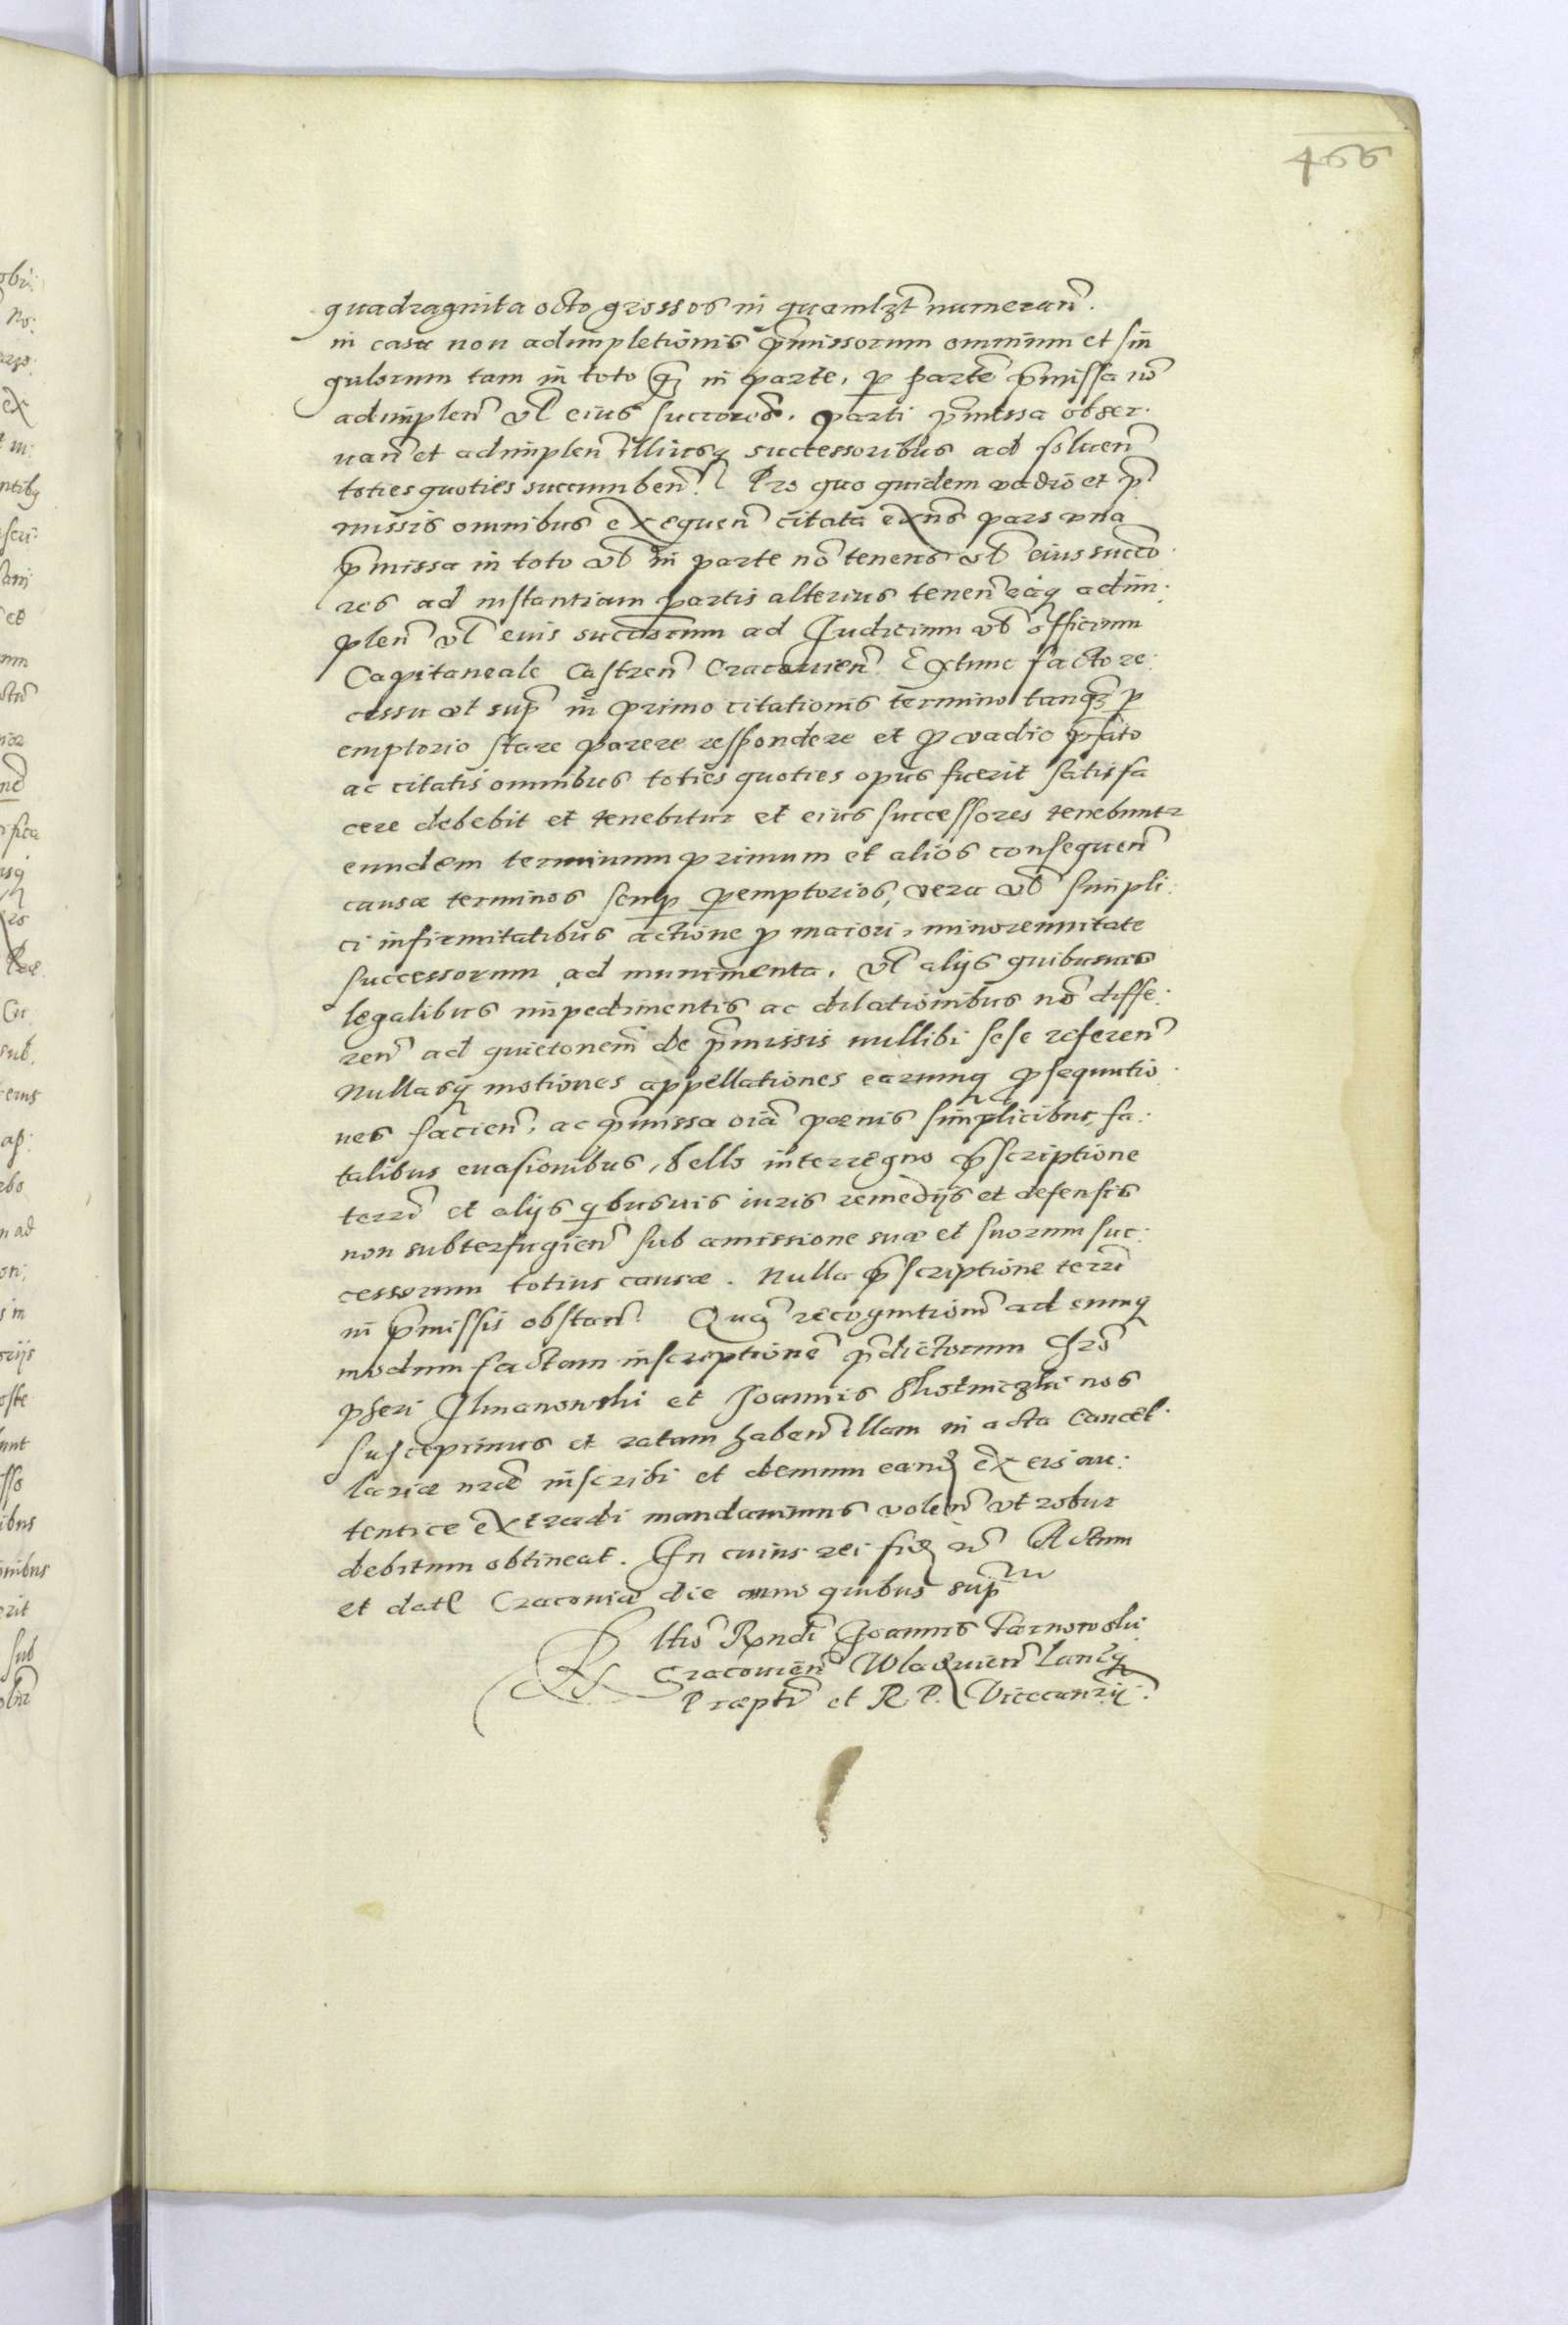 466
quadraginta octo grossos in quamlꝫt numeran̄.
in casu non adimpletionis p̄missorum omnium et sin
gulorum tam in toto qꝫ in parte, ꝑ partē p̄missa nō
adimplen̄ vl̄ eius succores. parti p̄missa obser:
uan̄ et adimplen̄ illiusqꝫ successoribus ad soluen̄
toties quoties succumben̄. Pro quo quidem vadio et p̄
missis omnibus exequen̄ citata exn̄s pars vna
p̄missa in toto vl̄ in parte nō tenens vl̄ eius succo
res ad instantiam partis alterius tenen̄ eaqꝫ adim:
plen̄ vl̄ euis succorum ad Iudicium vl̄ officium
Capitaneale Castren̄ Cracouien̄ Extunc facto re:
cessu vt sup̄ in primo citationis termino tanqꝫ ꝑ
emptorio stare parere respondere et ꝓ vadio p̄fato
ac citatis omnibus toties quoties opus fuerit satisfa
cere debebit et tenebitur et eius successores tenebuntr
eundem terminum primum et alios consequen̄
causæ terminos semꝑ ꝑemptorios, vera vl̄ simpli:
ci infirmitatibus actione ꝓ maiori, minorennitate
successorum ad munimenta, vl̄ alijs quibusuis
legalibus impedimentis ac dilationibus nō diffe:
ren̄ ad quietonem de p̄missis nullibi sese referen̄
Nullasqꝫ motiones appellationes earumqꝫ ꝓsequutio
nes facien̄, ac p̄missa oīa pænis simplicibus, fa:
talibus euasionibus, bello interregno p̄scriptione
terrī et alijs qbusuis iuris remedijs et defensis
non subterfugien̄ sub amissione suæ et suorum suc:
cessorum totius causæ. Nulla p̄scriptione terrī
in p̄missis obstan̄. Quā recognitionē ad eumqꝫ
modum factam inscriptionē p̄dictorum Chrō
pheri Ilmanowski et Joannis nos
suscepimus et ratam haben̄ illam in acta Cancel:
lariæ nr̄æ inscribi et demum eandꝫ ex eis au:
tentice extradi mandauimus volen̄ vt robur
debitum obtineat. In cuius rei fidꝫ rc̄ Actum
et datꝭ Cracouiæ die anno quibus sup̄
Rndi Joannis Tarnowski
Cracouien̄ Wladislauien̄ Lanciꝫ
Præpti et R P. Vicecanrij.